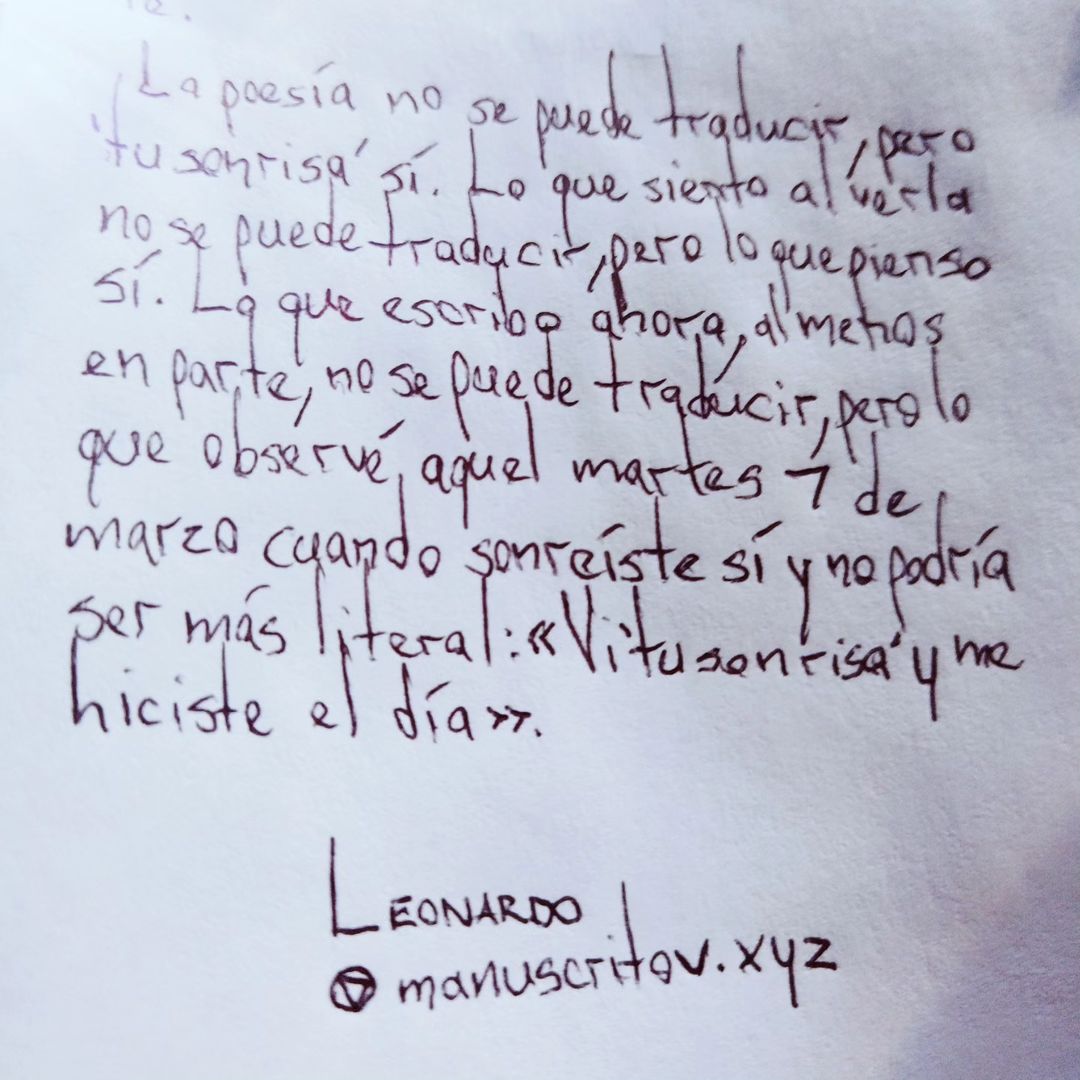 La poesía no se puede traducir, pero
'tu sonrisa' sí. Lo que siento al verla
no se puede traducir, pero lo que pienso
sí. Lo que escribo ahora, al menos
en parte, no se puede traducir, pero lo
que observé, aquel martes 7 de
marzo cuando sonreíste sí y no podría
ser más literal: «Vi tu sonrisa y me
hiciste el día».
LEONARDO
manuscritov.xyz